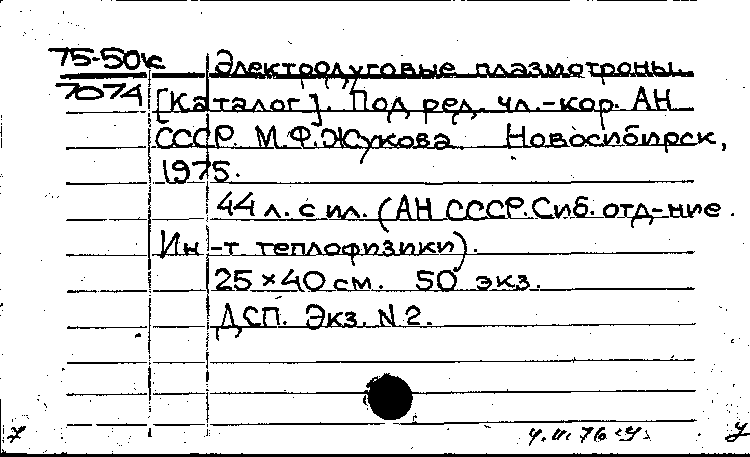 75-50к Электродуговые плазмотроны.
7074 [Каталог]. Под ред. чл.-кор. АН
СССР. М.Ф. Жукова. Новосибирск,
1975.
44 л. с ил. (АН СССР. Сиб. отд-ние.
Ин-т теплофизики).
25×40 см. 50 экз.
ДСП. Экз. N 2.